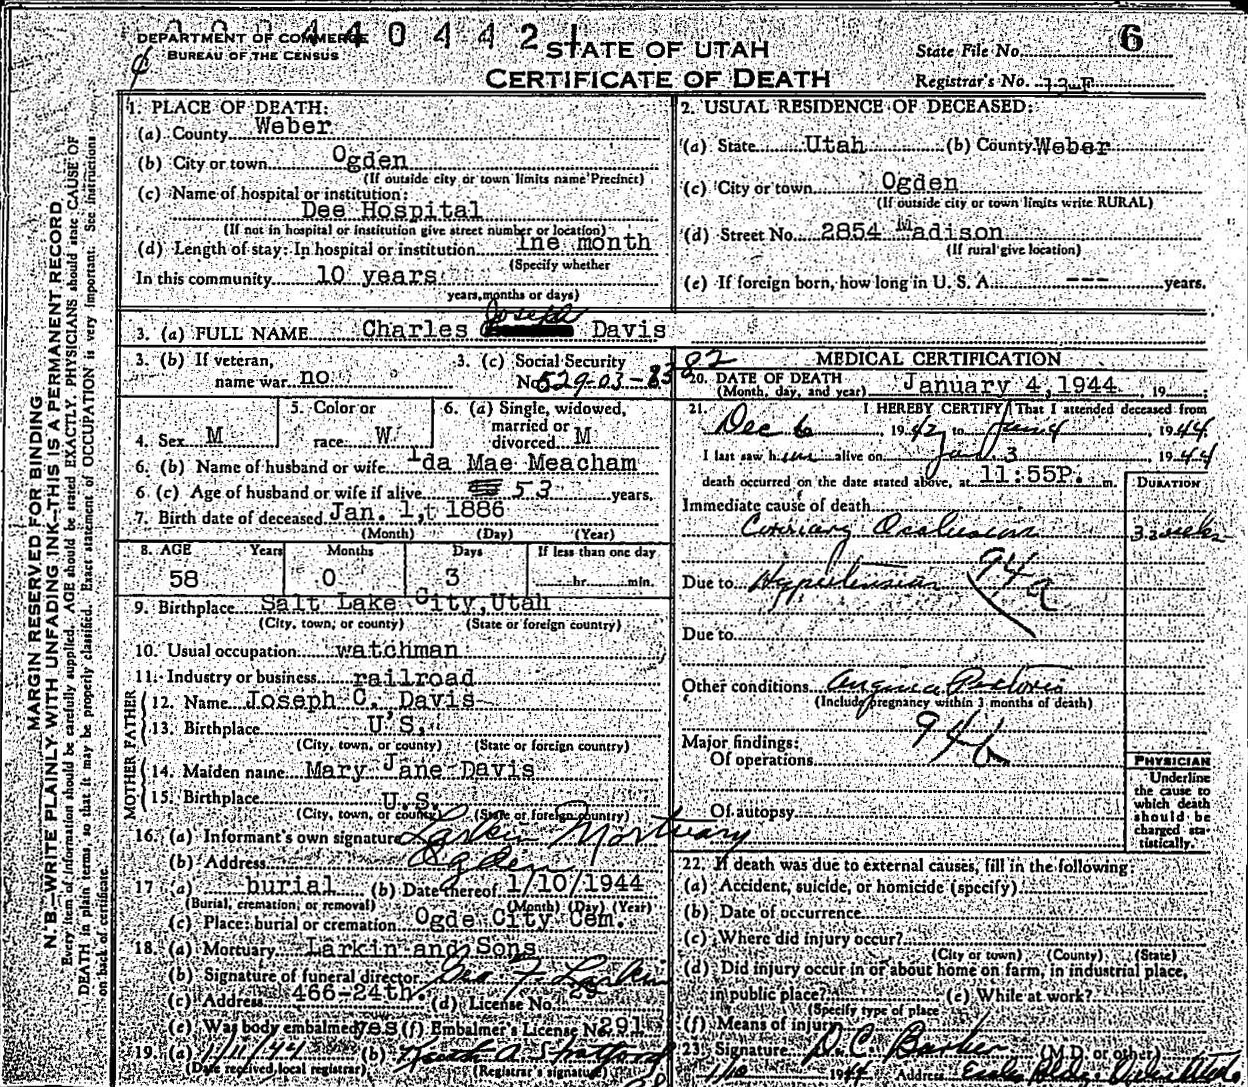 DEPARTMENT OF COMMERCE
BUREAU OF THE CENSUS
STATE OF UTAH
CERTIFICATE OF DEATH
State File No. 6
Registrar's No. 13-F
MARGIN RESERVED FOR BINDING
N. B.—WRITE PLAINLY, WITH UNFADING INK—THIS IS A PERMANENT RECORD
Every item of information should be carefully supplied. AGE should be stated EXACTLY. PHYSICIANS should state CAUSE OF
DEATH in plain terms, so that it may be properly classified. Exact statement of OCCUPATION is very important. See instructions
on back of certificate.
1. PLACE OF DEATH:
(a) County Weber
(b) City or town Ogden
(If outside city or town limits name Precinct)
(c) Name of hospital or institution:
Dee Hospital
(If not in hospital or institution give street number or location)
(d) Length of stay: In hospital or institution 1ne month
(Specify whether
In this community 10 years
years, months or days)
2. USUAL RESIDENCE OF DECEASED:
(a) State Utah (b) County Weber
(c) City or town Ogden
(If outside city or town limits write RURAL)
(d) Street No. 2854 Madison
(If rural give location)
(e) If foreign born, how long in U. S. A. --- years.
3. (a) FULL NAME Charles Joseph Davis
3. (b) If veteran,
name war no
3. (c) Social Security
No. 529-03-8382
4. Sex M
5. Color or
race W
6. (a) Single, widowed,
married or
divorced M
6. (b) Name of husband or wife Ida Mae Meacham
6. (c) Age of husband or wife if alive 53 years.
7. Birth date of deceased Jan. 1,t 1886
(Month) (Day) (Year)
8. AGE Years Months Days If less than one day
58 0 3 hr. min.
9. Birthplace Salt Lake City, Utah
(City, town, or county) (State or foreign country)
10. Usual occupation watchman
11. Industry or business railroad
FATHER
12. Name Joseph C. Davis
13. Birthplace U.S.
(City, town, or county) (State or foreign country)
MOTHER
14. Maiden name Mary Jane Davis
15. Birthplace U.S.
(City, town, or county) (State or foreign country)
16. (a) Informant's own signature Larkin Mortuary
(b) Address Ogden
17 (a) burial (b) Date thereof 1/10/1944
(Burial, cremation, or removal) (Month) (Day) (Year)
(c) Place: burial or cremation Ogde City Cem.
18. (a) Mortuary Larkin and Sons
(b) Signature of funeral director Geo F. Larkin
(c) Address 466-24th. (d) License No. 29
(e) Was body embalmed yes (f) Embalmer's License No. 291
19. (a) 1/11/44 (b) Keith A Stratford
(Date received local registrar) (Registrar's signature)
MEDICAL CERTIFICATION
20. DATE OF DEATH January 4, 1944 , 19
(Month, day, and year)
21. I HEREBY CERTIFY, That I attended deceased from
Dec 6 , 1942 to Jan 4 , 1944
I last saw him alive on Jan 3 , 1944
death occurred on the date stated above, at 11:55P. m.
DURATION
Immediate cause of death
Coronary Occlusion 3 weeks
Due to Hypertension 94a
Due to
Other conditions Angina Pectoris
(Include pregnancy within 3 months of death)
94b
Major findings:
Of operations
Of autopsy
PHYSICIAN
Underline
the cause to
which death
should be
charged sta-
tistically.
22. If death was due to external causes, fill in the following:
(a) Accident, suicide, or homicide (specify)
(b) Date of occurrence
(c) Where did injury occur?
(City or town) (County) (State)
(d) Did injury occur in or about home on farm, in industrial place,
in public place? (e) While at work?
(Specify type of place
(f) Means of injury
23. Signature D.C. Barker (M.D. or other)
1/10 1944 Address Eccles Bldg. Ogden Utah